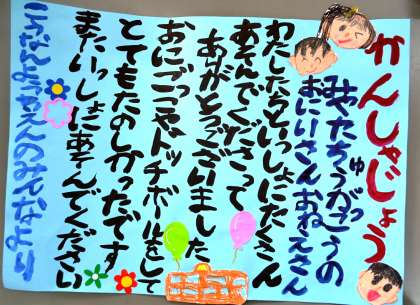 かんしゃじょう
みやたちゅうがっこうの
おにいさんおねえさん
わたしたちといっしょにたくさん
あそんでくださって
ありがとうございました
おにごっこやドッチボールをして
とてもたのしかったです
またいっしょにあそんでください
こうなんようちえんのみんなより